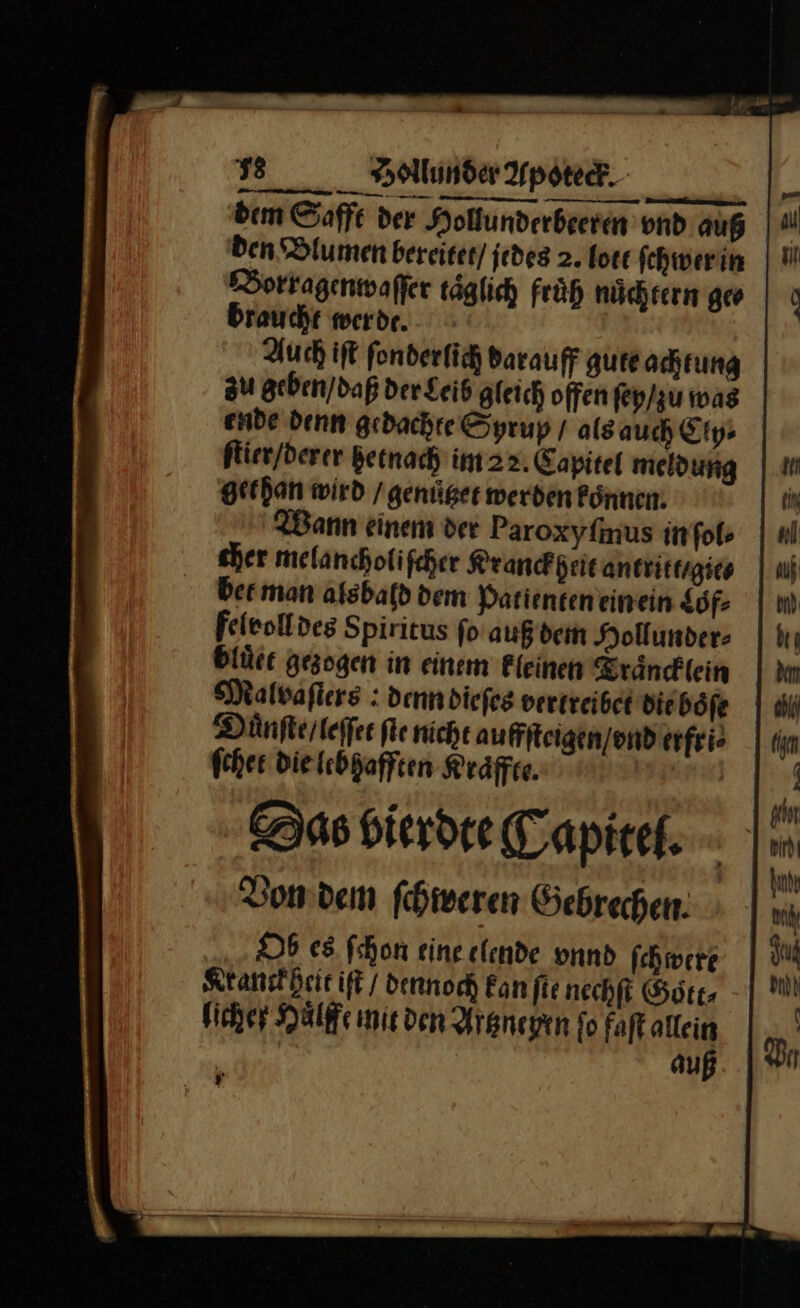 18 Hollunder Apoteck.
dem Safft der Hollunderbeeren vnd auß
den Blumen bereitet/ jedes 2. lott ſchwer in
Borragenwaſſer taͤglich fruͤh nuͤchtern ge⸗
braucht werde.
Auch iſt ſonderlich darauff gute achtung
zu geben/daß der Leib gleich offen ſey/zu was
ende denn gedachte Syrup / als auch Cly⸗
ſtier/derer hetnach im 22. Capitel meldung
gethan wird / genuͤtzet werden koͤnnen.
Wann einem der Paroxyſmus in ſol⸗
cher melancholiſcher Kranckheit antritt/gie⸗
bet man alsbald dem Patienten ein ein Loͤf⸗
felvoll des Spiritus ſo auß dem Hollunder⸗
bluͤet gezogen in einem kleinen Traͤncklein
Malvaſiers : denn dieſes vertreibet die boͤſe
Duͤnſte/leſſet ſie nicht auffſteigen/vnd erfri⸗
ſchet die lebhafften Kraͤffte.
Das vierdte Capitel.
Von dem ſchweren Gebrechen.
Ob es ſchon eine elende vnnd ſchwere
Kranckheit iſt / dennoch kan ſie nechſt Goͤtt⸗
licher Huͤlffe mit den Artzneyen ſo faſt allein
auß